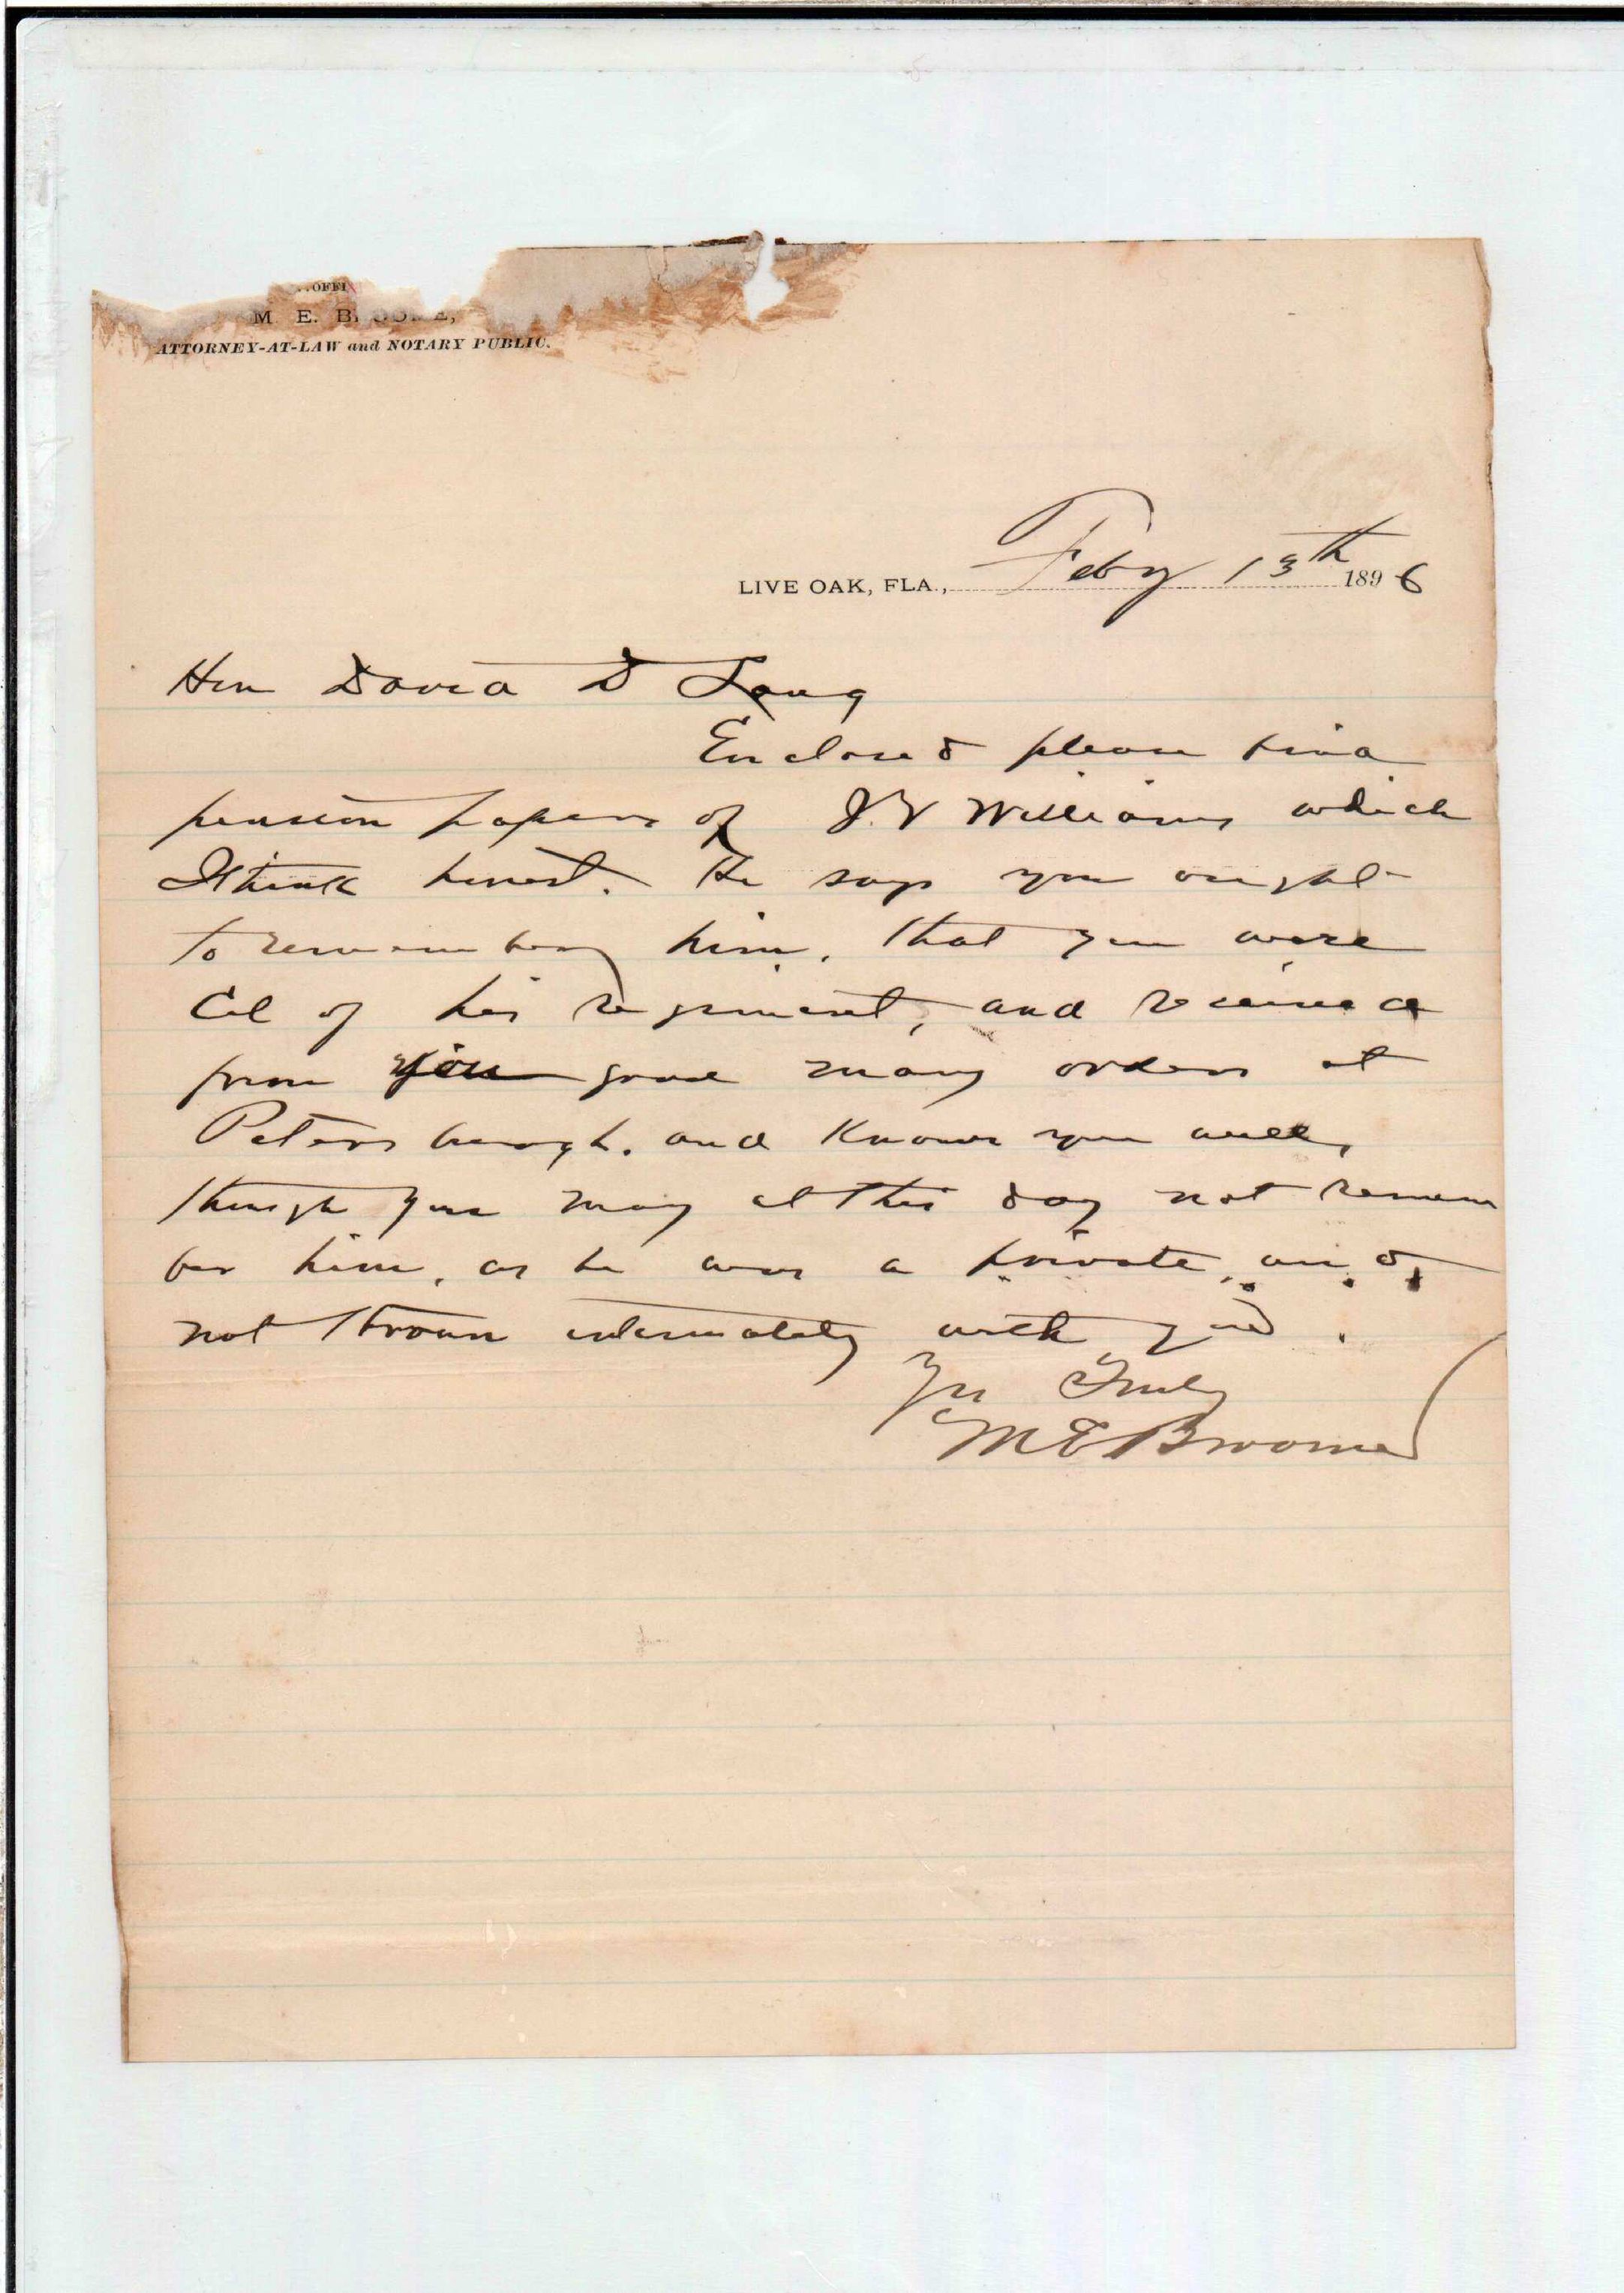 OFFI
M. E. BROOME,
ATTORNEY-AT-LAW and NOTARY PUBLIC.
LIVE OAK, FLA., Feby 13th 1896
Hon David D Lang
Enclosed please find
pension papers of J. V Williams which
I think honest. He says you ought
to remember him, that you were
Col of his regiment, and received
from you good many orders at
Petersburgh. and Knows you well,
though you may at this day not remem
ber him, as he was a private, and
not thrown intimately with you.
Yrs Truly
M E Broome